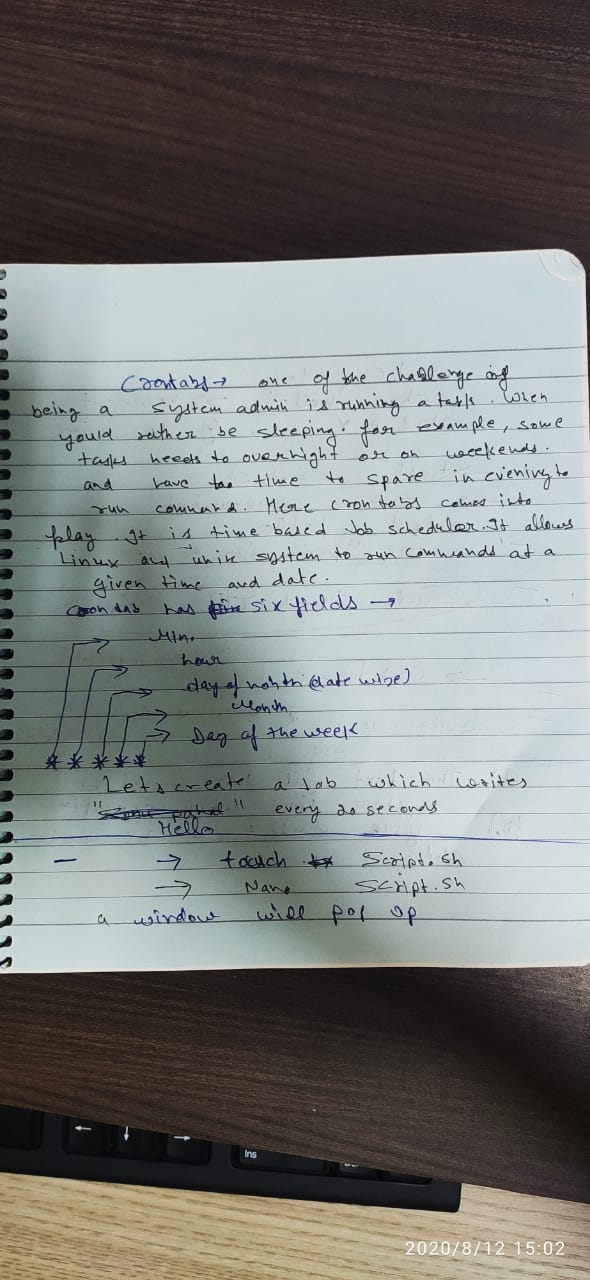 Crontabs → one of the challenge of
being a system admin is running a task. When
yould rather be sleeping. for example, some
tasks needs to overnight or on weekends.
and have too time to spare in evening to
run command. Here crontabs comes into
play. It is time based Job scheduler. It allows
Linux and unix system to run commands at a
given time and date.
Crontab has six fields →
Min.
hour
day of month (date wise)
Month
Day of the week
* * * * *
Lets create a Job which writes
" " every 20 seconds
Hello
- → touch Script.sh
→ Nano Script.sh
a window will pop up
Ins
2020/8/12 15:02